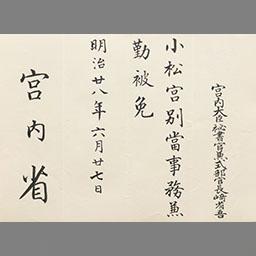 宮内大臣秘書官兼式部官長﨑省吾
小松宮別當事務兼
勤被免
明治廿八年六月廿七日
宮内省